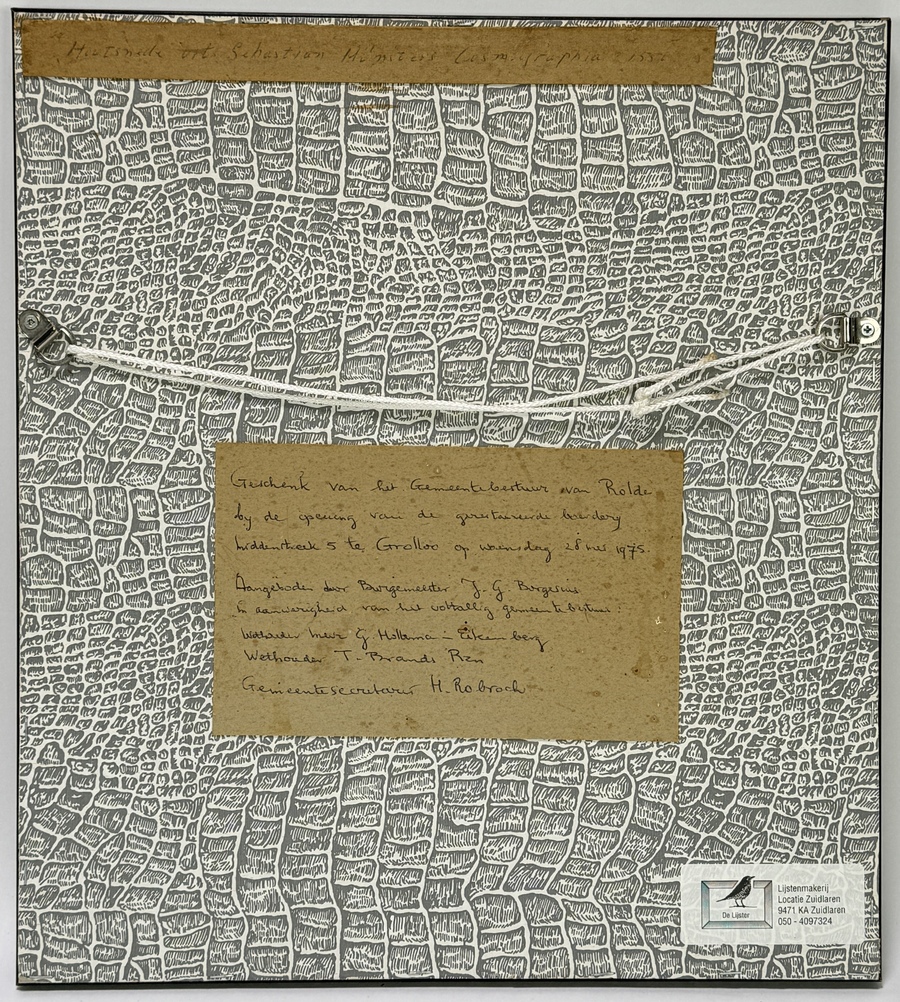 Houtsnede uit Sebastian Münsters Cosmographia
Geschenk van het Gemeentebestuur van Rolde
by de opening van de gerestaureerde boerdery
Middenstreek 5 te Grolloo op woensdag 28 mei 1975.
Aangeboden door Burgemeester J. G. Borgesius
in aanwezigheid van het voltallig gemeentebestuur:
Wethouder G. Hollema - Eikenberg
Wethouder T. Brands Rzn
Gemeentesecretaris H. Robroch
De Lijster
Lijstenmakerij
Locatie Zuidlaren
9471 KA Zuidlaren
050 - 4097324